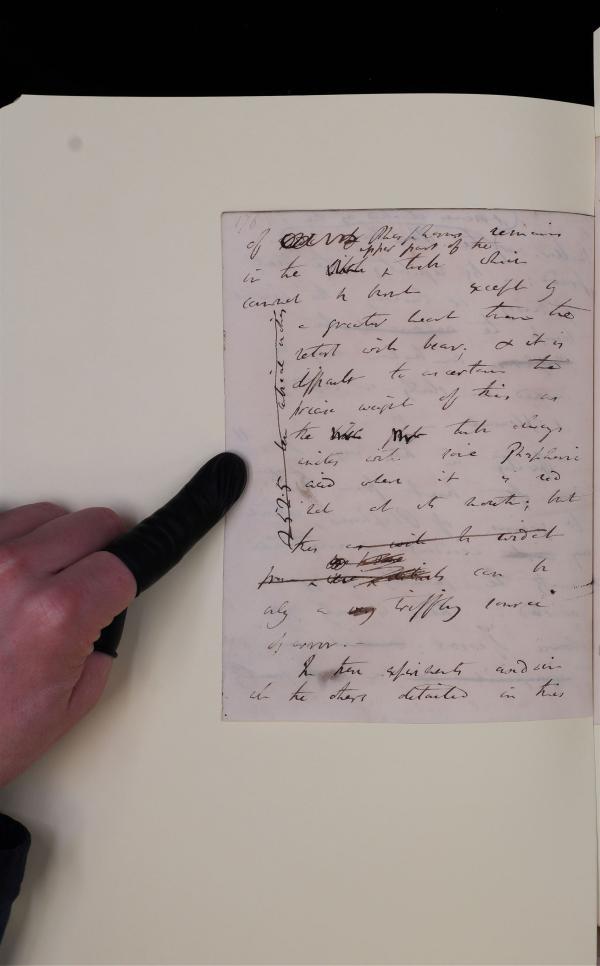 of Phosphorus remains
upper part of the
in the tube which
cannot be burnt except by
a greater heat than the
retort will bear; & it is
difficult to ascertain the
precise weight of this as
the tube always
unites with some Phosphoric
acid when it is red
at its mouth; but
this as will be evident
from can be
only a very triffling source
of error. —
In these experiments and in
all the others detailed in this